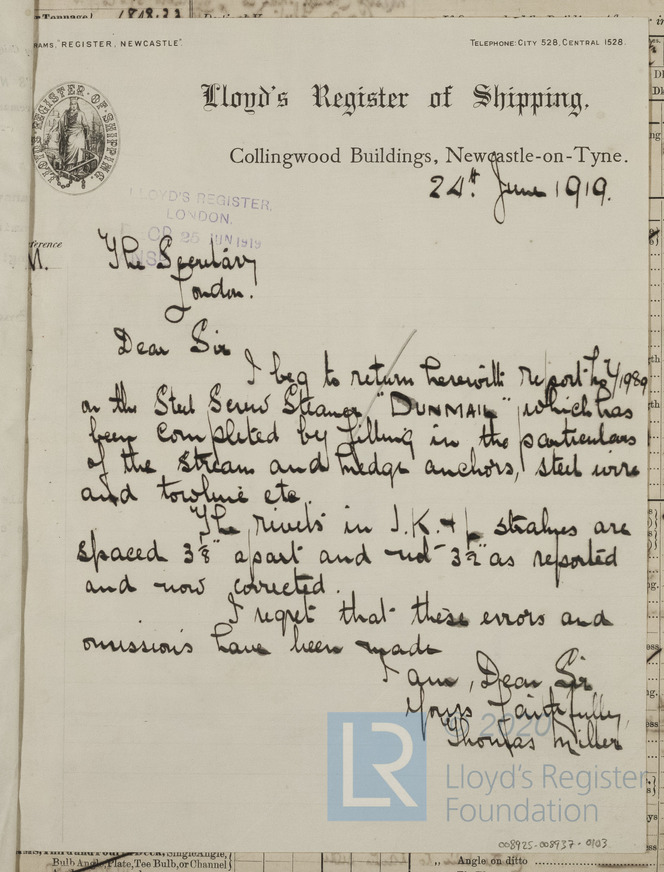 Tonnage 1818.33
RAMS, "REGISTER, NEWCASTLE".
TELEPHONE: CITY 528, CENTRAL 1528.
LLOYD'S REGISTER OF SHIPPING
Lloyd's Register of Shipping,
Collingwood Buildings, Newcastle-on-Tyne.
24th June 1919.
LLOYD'S REGISTER,
LONDON.
25 JUN 1919
ference
The Secretary
London.
Dear Sir
I beg to return herewith report No 71989
on the Steel Screw Steamer "DUNMAIL" which has
been completed by filling in the particulars
of the stream and kedge anchors, steel wire
and towline etc.
The rivets in J.K. & L strakes are
spaced 3⅜" apart and not 3½" as reported
and now corrected.
I regret that these errors and
omissions have been made
I am, Dear Sir
Yours faithfully,
Thomas Miller
© 2020
LR
Lloyd's Register
Foundation
008925-008937-0103
Bulb Angle, Plate, Tee Bulb, or Channel
„ Angle on ditto